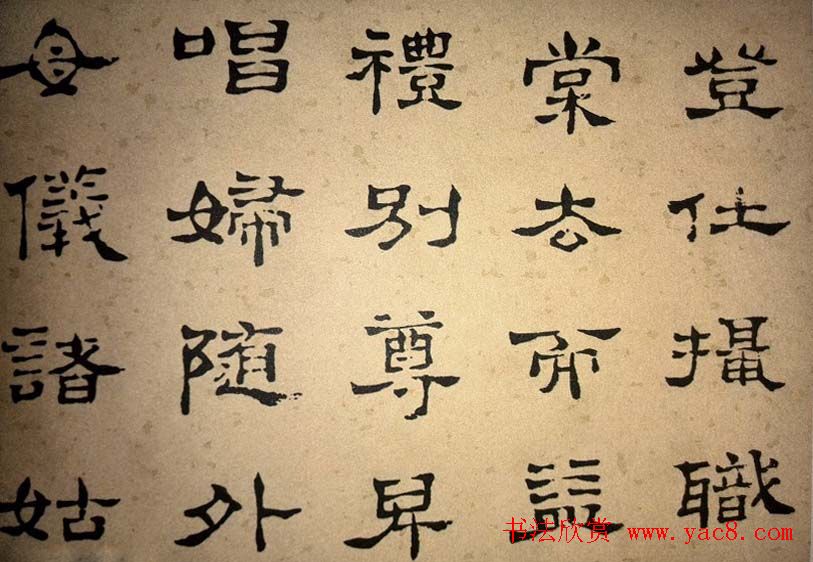 登仕攝職
棠去而
禮別尊卑
唱婦随外
母儀諸姑
书法欣赏 www.yac8.com